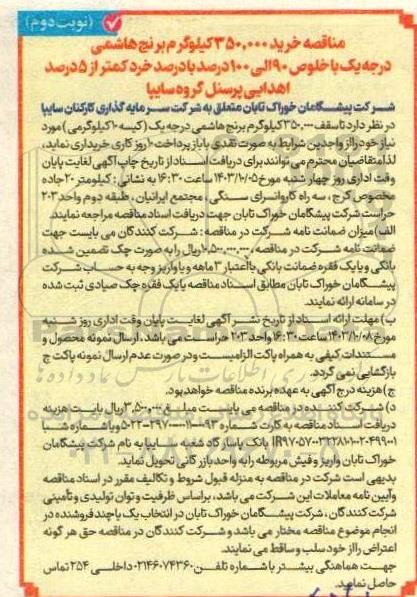 (نوبت دوم)
مناقصه خرید ۳۵۰,۰۰۰ کیلوگرم برنج هاشمی
درجه یک با خلوص ۹۰ الی ۱۰۰ درصد با درصد خرد کمتر از ۵ درصد
اهدایی پرسنل گروه سایپا
شرکت پیشگامان خوراک تابان متعلق به شرکت سرمایه گذاری کارکنان سایپا
در نظر دارد تا سقف ۳۵۰,۰۰۰ کیلوگرم برنج هاشمی درجه یک (کیسه ۱۰ کیلوگرمی) مورد
نیاز خود را از واجدین شرایط به صورت نقدی با باز پرداخت ۱۰ روز کاری خریداری نماید،
لذا متقاضیان محترم می توانند برای دریافت اسناد از تاریخ چاپ آگهی لغایت پایان
وقت اداری روز چهار شنبه مورخ ۱۴۰۳/۱۰/۰۵ ساعت ۱۶:۳۰ به نشانی: کیلومتر ۲۰ جاده
مخصوص کرج، سه راه کاروانسرای سنگی، مجتمع ایرانیان، طبقه دوم واحد ۲۰۳
حراست شرکت پیشگامان خوراک تابان جهت دریافت اسناد مناقصه مراجعه نمایند.
الف) میزان ضمانت نامه شرکت در مناقصه: شرکت کنندگان می بایست جهت
ضمانت نامه شرکت در مناقصه، ۱۰,۵۰۰,۰۰۰,۰۰۰ ریال را به صورت چک تضمین شده
بانکی و یا یک فقره ضمانت بانکی با اعتبار ۳ ماهه و یا واریز وجه به حساب شرکت
پیشگامان خوراک تابان مطابق اسناد مناقصه یا یک فقره چک صیادی ثبت شده
در سامانه ارائه نمایند.
ب) مهلت ارائه اسناد از تاریخ نشر آگهی لغایت پایان وقت اداری روز شنبه
مورخ ۱۴۰۳/۱۰/۰۸ ساعت ۱۶:۳۰ واحد ۲۰۳ حراست می باشد، ارسال نمونه محصول و
مستندات کیفی به همراه پاکت الزامیست و در صورت عدم ارسال نمونه پاکت ج
بازگشایی نمی گردد.
ج) هزینه درج آگهی به عهده برنده مناقصه خواهد بود.
د) شرکت کنندگان در مناقصه می بایست مبلغ ۳,۵۰۰,۰۰۰ ریال بابت هزینه
دریافت اسناد مناقصه به کارت شماره و یا شماره شبا
بانک پاسارگاد شعبه سایپا به نام شرکت پیشگامان
خوراک تابان واریز و فیش مربوطه را به واحد بازرگانی تحویل نماید.
بدیهی است شرکت در مناقصه به منزله قبول شروط و تکالیف مقرر در اسناد مناقصه
و آیین نامه معاملات این شرکت می باشد، بر اساس ظرفیت و توان تولیدی و تأمینی
شرکت کنندگان، شرکت پیشگامان خوراک تابان در انتخاب یک یا چند فروشنده در
انجام موضوع مناقصه مختار می باشد و شرکت کنندگان در مناقصه حق هر گونه
اعتراض را از خود سلب و ساقط می نمایند.
جهت هماهنگی بیشتر با شماره تلفن ۰۲۱۴۶۰۷۴۳۶۰ داخلی ۲۵۴ تماس
حاصل نمایید.